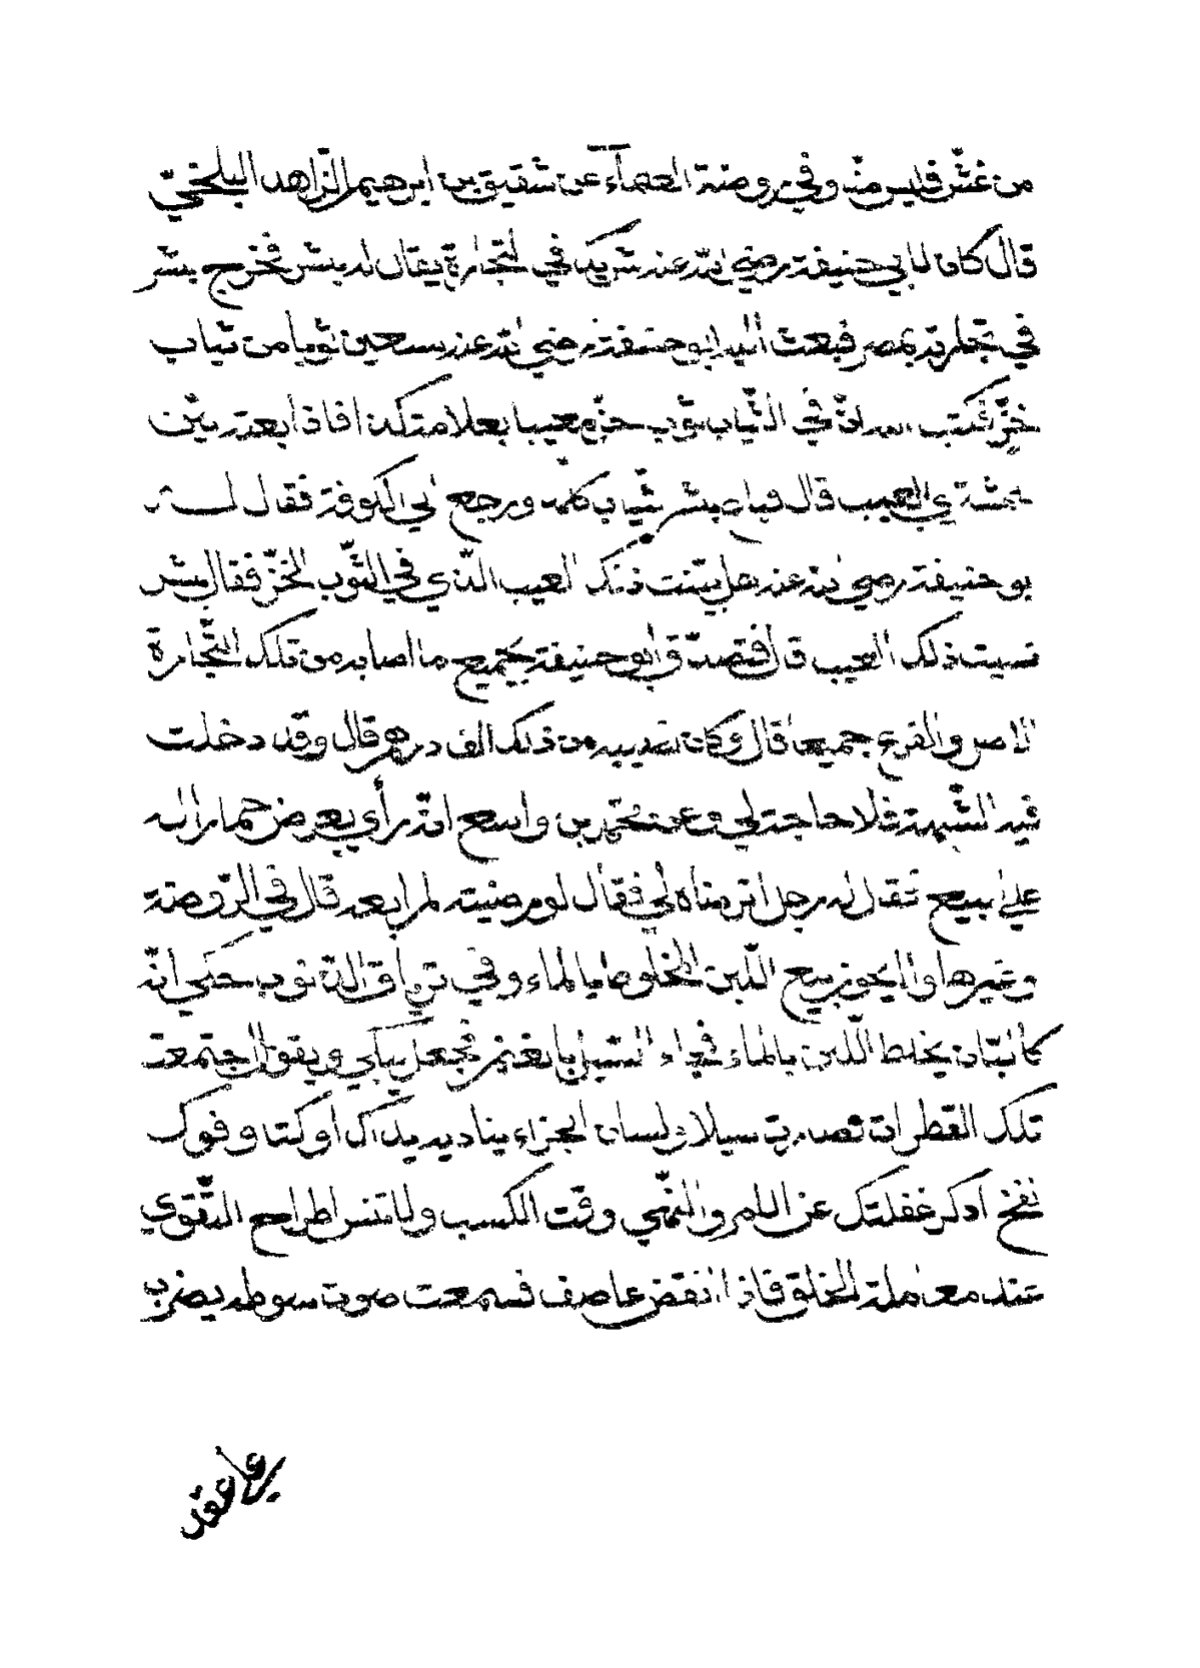 من غش فليس منا وفي روضة العلمآء عن شقيق بن ابرهيم الزّاهد البلخيّ
قال كان لابي حنيفة رضي الله عنه شريك في التجارة يقال له بشر فخرج بشر
في تجارته بمصر فبعث اليه ابو حنيفة رضي الله عنه سبعين ثوبا من ثياب
خزّ فكتب اليه انّ في الثّياب ثوب خزّ معيبا بعلامة كذا فاذا بعته بيّن
للمشتري العيب قال فباع بشر الثّياب كلّها ورجع الي الكوفة فقال له
بو حنيفة رضي الله عنه هل بيّنت ذلك العيب الّذي في الثّوب الخزّ فقال بشر
نسيت ذلك العيب قال فتصدّق ابو حنيفة بجميع ما اصابه من تلك التّجارة
الاصل والفرع جميعا قال وكان نصيبه من ذلك الف درهم قال وقد دخلت
فيه الشّبهة فلا حاجة لي وعن محّمد بن واسع انّه رأي يعرض حمارا له
علي البيع فقال له رجل اترضاه لي فقال لو رضيته لم ابعه قال في الرّوضة
وغيرها ولا يجوز بيع اللّبن المخلوط بالماء وفي ترياق الذّنوب حكي انّه
كان لبّان يخلط اللّبن بالماء فجاء السّيل بالغنم فجعل يبكي ويقول اجتمعت
تلك القطرات فصارت سيلا ولسان الجزاء يناديه يداك اوكتا وفوك
نفخ اذكر غفلتك عن الامر والنّهي وقت الكسب ولا تنس اطراح التّقوي
عند معاملة الخلق فاذا انقض عاصف فسمعت صوت سوطه يضرب